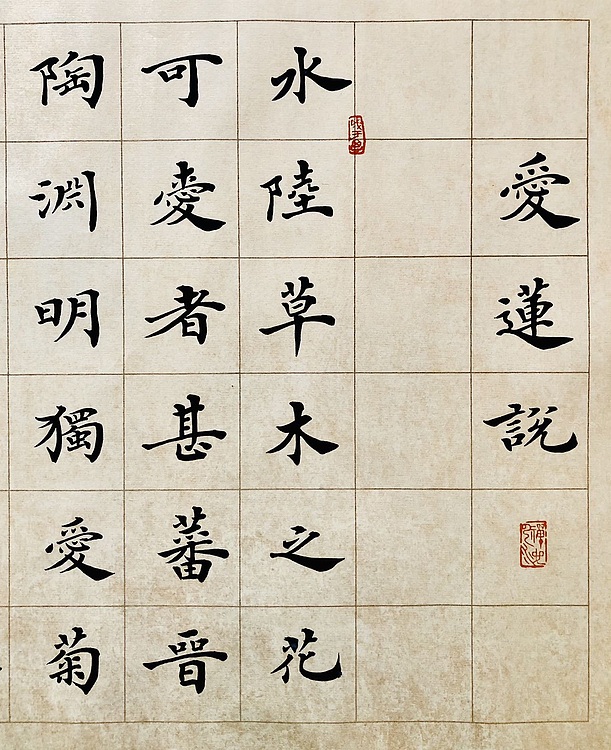 愛蓮說
水陸草木之花
可愛者甚蕃晉
陶淵明獨愛菊